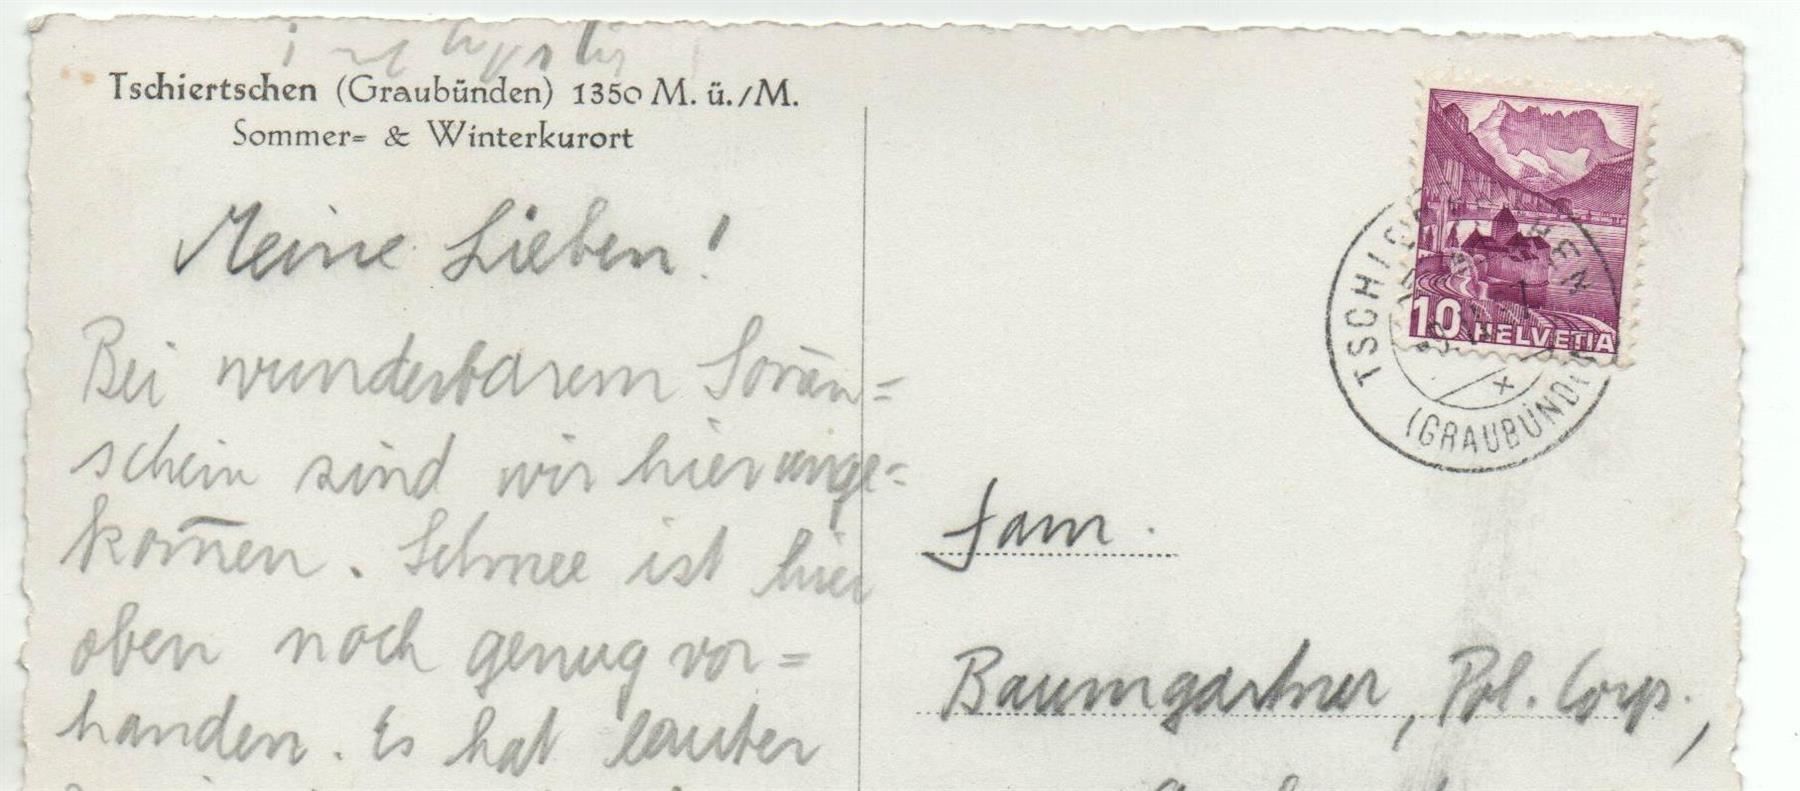 Tschiertschen (Graubünden) 1350 M. ü./M.
Sommer= & Winterkurort
Meine Lieben!
Bei wunderbarem Soñen=
schein sind wir hier ange=
kom̄en. Schnee ist hier
oben noch genug vor=
handen. Es hat lauter
10 HELVETIA
TSCHIERTSCHEN
(GRAUBÜNDEN)
Fam.
Baumgartner, Pol. Corp.,